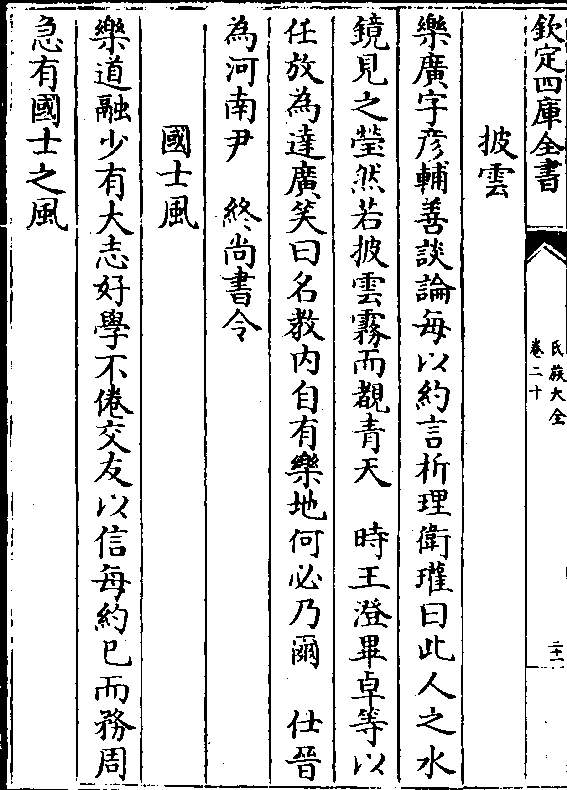 欽定四庫全書
氏族大全
卷二十
二十一
披雲
樂廣字彦輔善談論每以約言析理衛瓘曰此人之水
鏡見之瑩然若披雲霧而覩青天　時王澄畢卓等以
任放為達廣笑曰名教内自有樂地何必乃爾　仕晉
為河南尹　終尚書令
國士風
樂道融少有大志好學不倦交友以信每約已而務周
急有國士之風